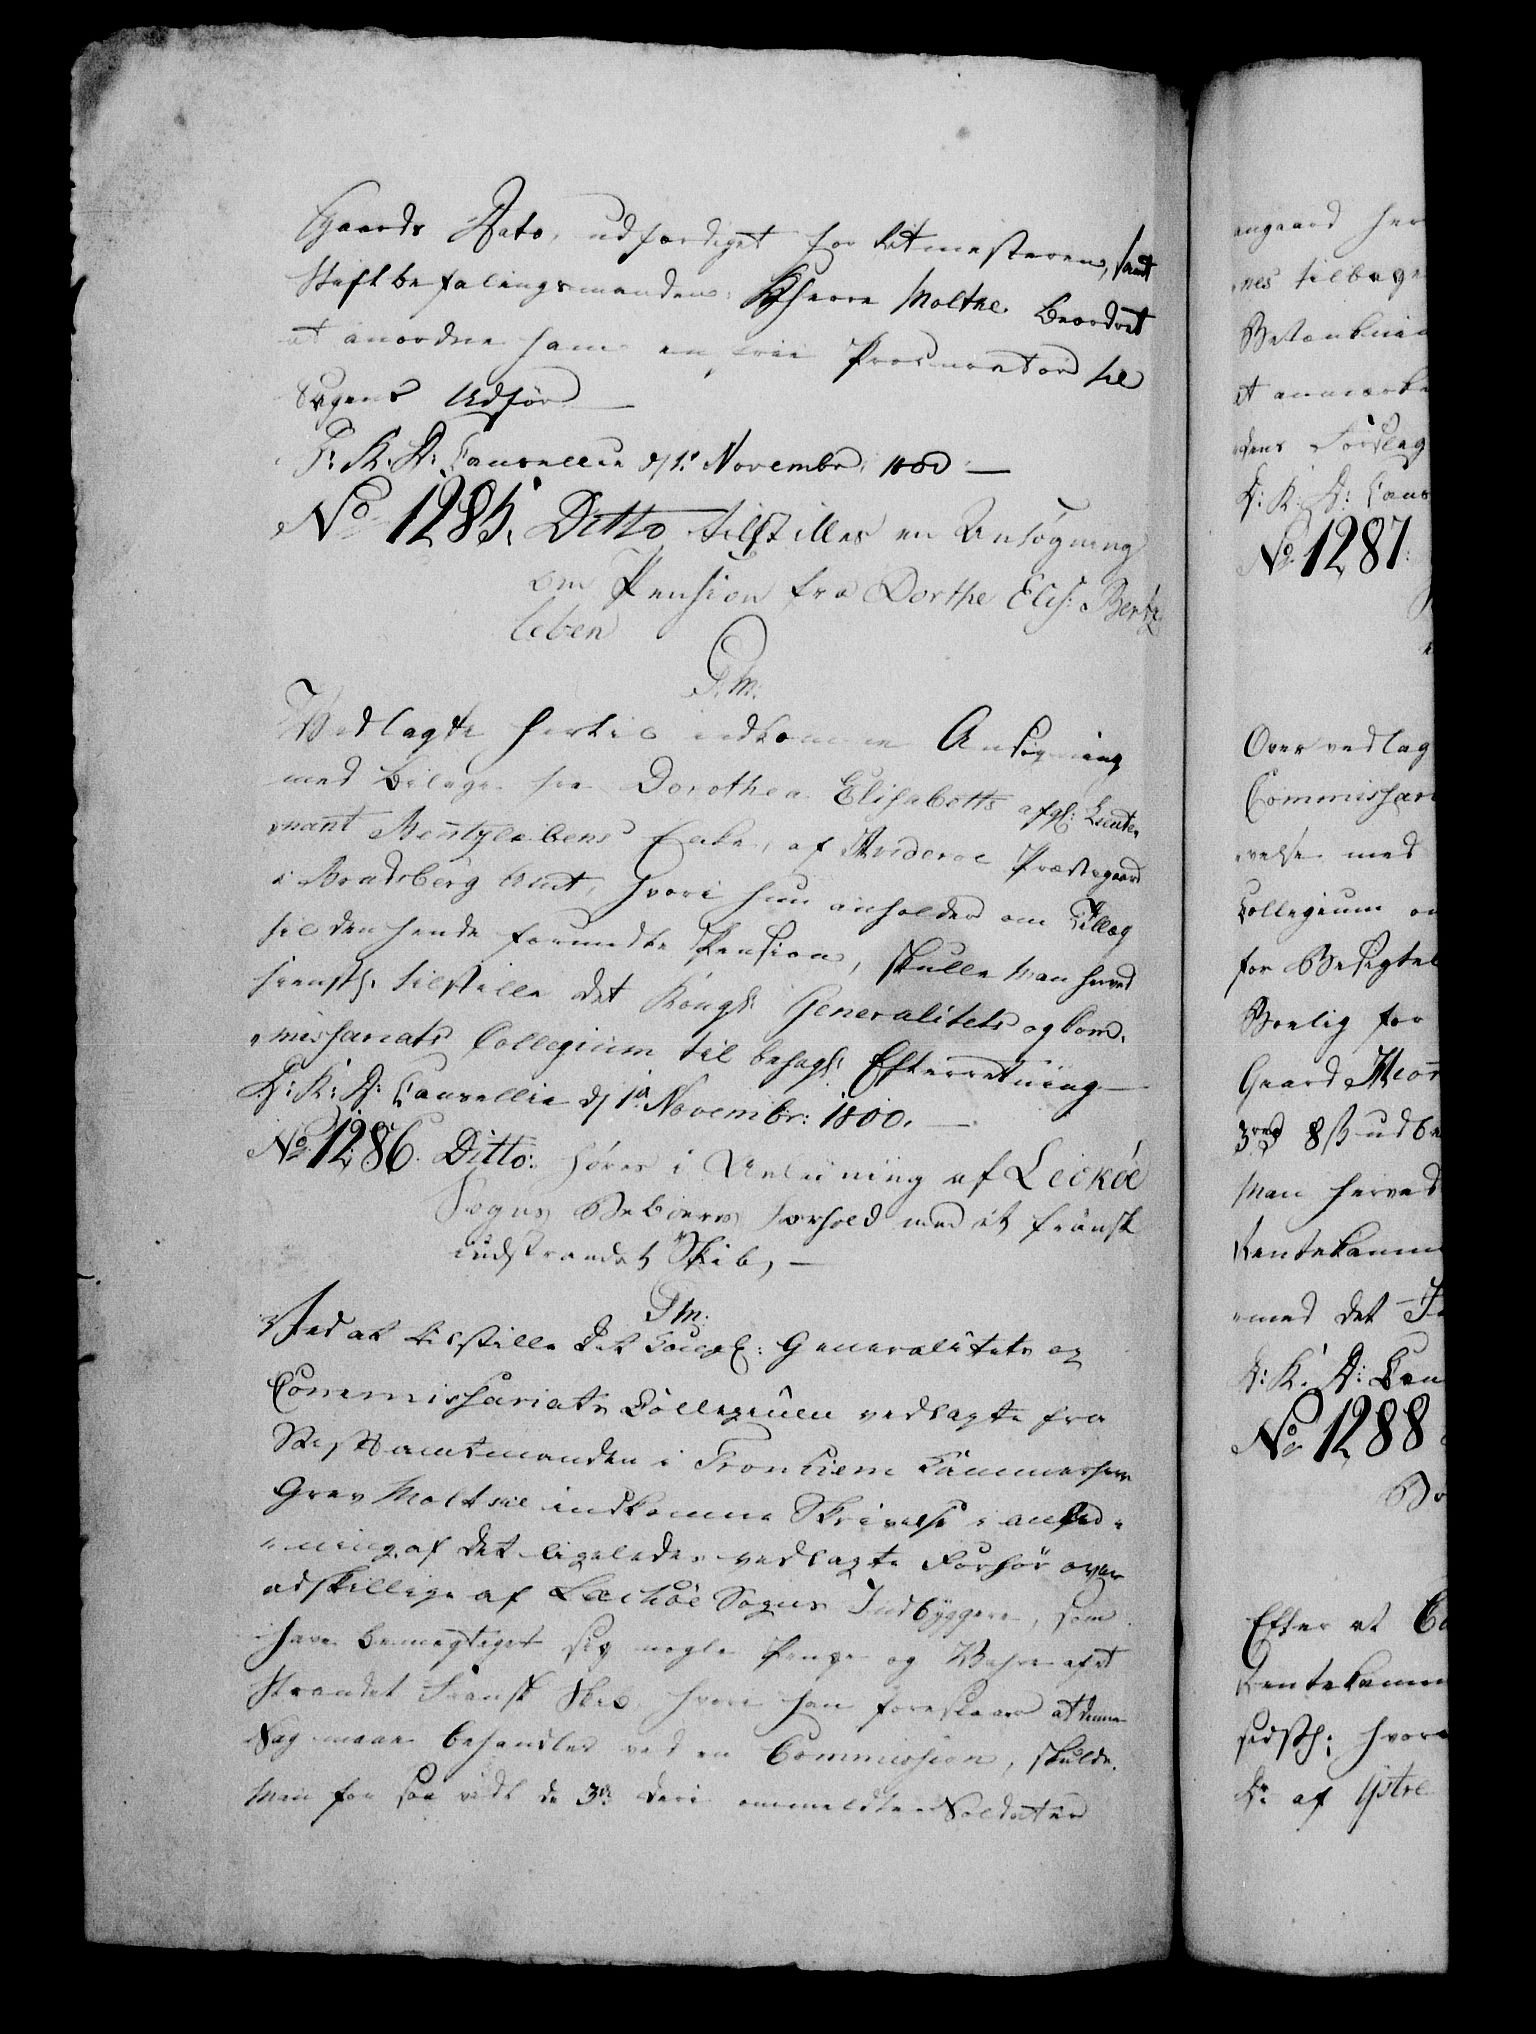 Gaards Dato, udfærdiget for Ritmesteren, samt
Stiftbefalingsmanden Khherre Moltke beordret
at anordne ham en frie Procurator til
Sagens Udför
D: K: D: Cancellie d/ 1: Novembr: 1800 —
No 1285. Ditto tilstilles en Ansögning
om Pension fra Dorthe Elis: Bentz
leben
P. M:
Vedlagte hertil indkomne Ansögning
med Bilage fra Dorothea Elisabeths afg: Lieute-
nant Mentzlebens Enke, af Hvideroe Præstegaard
i Bradsberg Amt, hvori hun anholder om Tillæg
til den hende forundte Pension, skulle Man herved
tienstl. tilstille det Kongl: Generalitets og Com-
missariats Collegium til behagl: Efterretning —
D: K: D: Cancellie d/ 1ste Novembr: 1800. —
No 1286. Ditto: høres i Anledning af Lecköe
Sogns Beboeres Forhold med et fransk
indstrandet Skib, —
P M:
Ved at tilstille Det Kongl: Generalitets og
Commissariats Collegium vedlagte fra
Stiftamtmanden i Tronhiem Kammerherre
Grev Moltke indkomne Skrivelse i anled-
ning af det ligeledes vedlagte Forhör over
adskillige af Leckøe Sogns Indbyggere, som
have bemægtiget sig nogle Penge og Vahre af et
strandet Fransk Skib, hvori han foreslaaer at denne
Sag maae behandles ved en Commission, skulde
Man for saa vidt de 3de deri ommeldte Soldater
angaard her
nes tilbage
Betænknin
at anmærke
dens Forslag
D: K: D: Canc
No 1287:
Over vedlag
Commissari
velse med
Collegium om
for Besigtel
Bolig for
Gaard
3rd 8 ß udbe
Man herved
Rentekamm
med det
D: K: D: Can
No 1288
Efter at
Rentekamm
sidstl: hvor
Dr. af